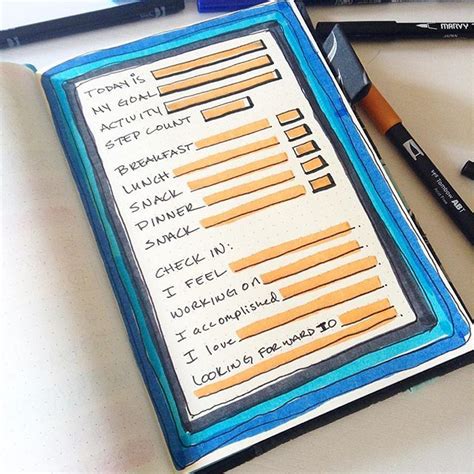 TODAY IS
MY GOAL
ACTIVITY
STEP COUNT
BREAKFAST
LUNCH
SNACK
DINNER
SNACK
CHECK IN:
I FEEL
WORKING ON
I accomplished
I love
LOOKING FORWARD TO
MARVY
JAPAN
Tombow ABT